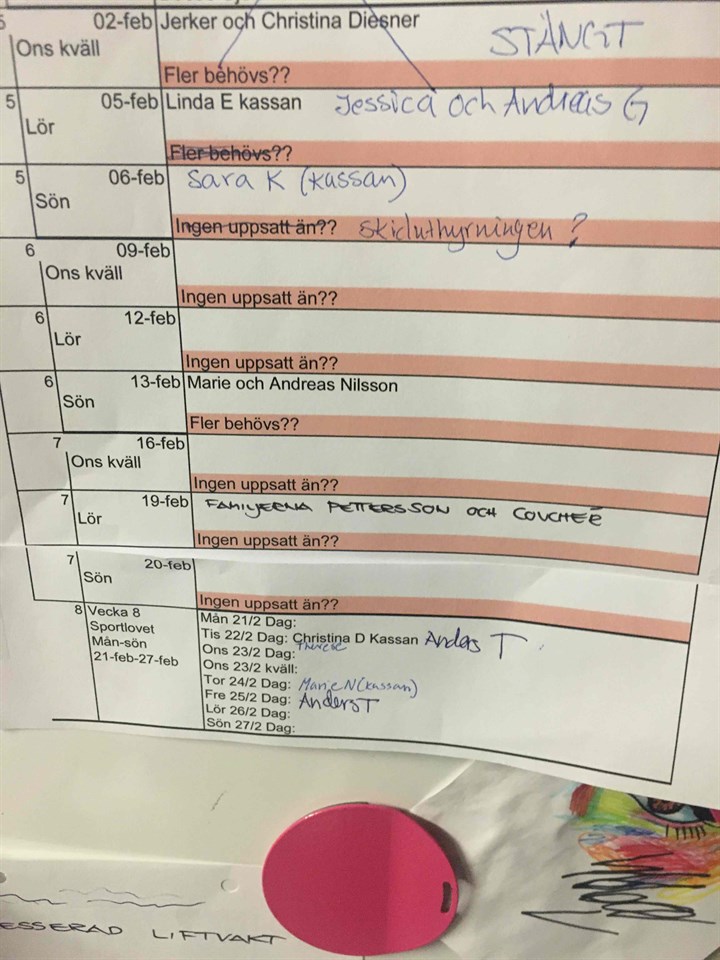 02-feb Jerker och Christina Diesner STÄNGT
Ons kväll
Fler behövs??
5 05-feb Linda E kassan Jessica och Andreas G
Lör
Fler behövs??
5 06-feb Sara K (kassan)
Sön
Ingen uppsatt än?? Skiduthyrningen?
6 09-feb
Ons kväll
Ingen uppsatt än??
6 12-feb
Lör
Ingen uppsatt än??
6 13-feb Marie och Andreas Nilsson
Sön
Fler behövs??
7 16-feb
Ons kväll
Ingen uppsatt än??
7 19-feb FAMILJERNA PETTERSSON OCH COUCHÉR
Lör
Ingen uppsatt än??
7 20-feb
Sön
Ingen uppsatt än??
8 Vecka 8
Sportlovet
Mån-sön
21-feb-27-feb
Mån 21/2 Dag:
Tis 22/2 Dag: Christina D Kassan Anders T
Ons 23/2 Dag: Therese
Ons 23/2 kväll:
Tor 24/2 Dag: Marie N (kassan)
Fre 25/2 Dag: Anders T
Lör 26/2 Dag:
Sön 27/2 Dag:
ESSERAD LIFTVAKT